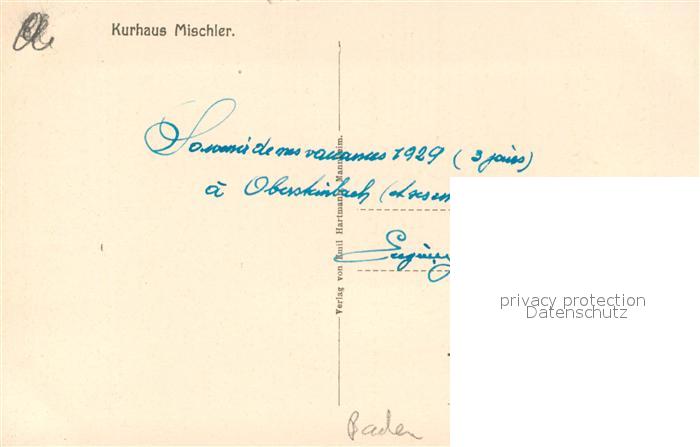 Kurhaus Mischler.
Souvenir de nos vacances 1929 (3 jours)
à Obersteinbach (et ses en
Verlag von Emil Hartmann, Mannheim.
privacy protection
Datenschutz
Baden